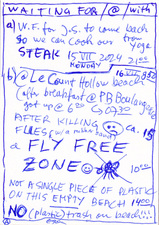 WAITING FOR /@/ with
a) W.F. for J.S. to come back
so we can cook our
STEAK 15 VII 2024 21:00
MONDAY
b) @ Le Count Hollow beach
after breakfast @ PB Boulangerie
got up @ 6
AFTER KILLING
FLIES ca. 15
a FLY FREE
ZONE
10:00
NOT A SINGLE PIECE OF PLASTIC
ON THIS EMPTY BEACH 14:00
NO (plastic) trash on beach!!!